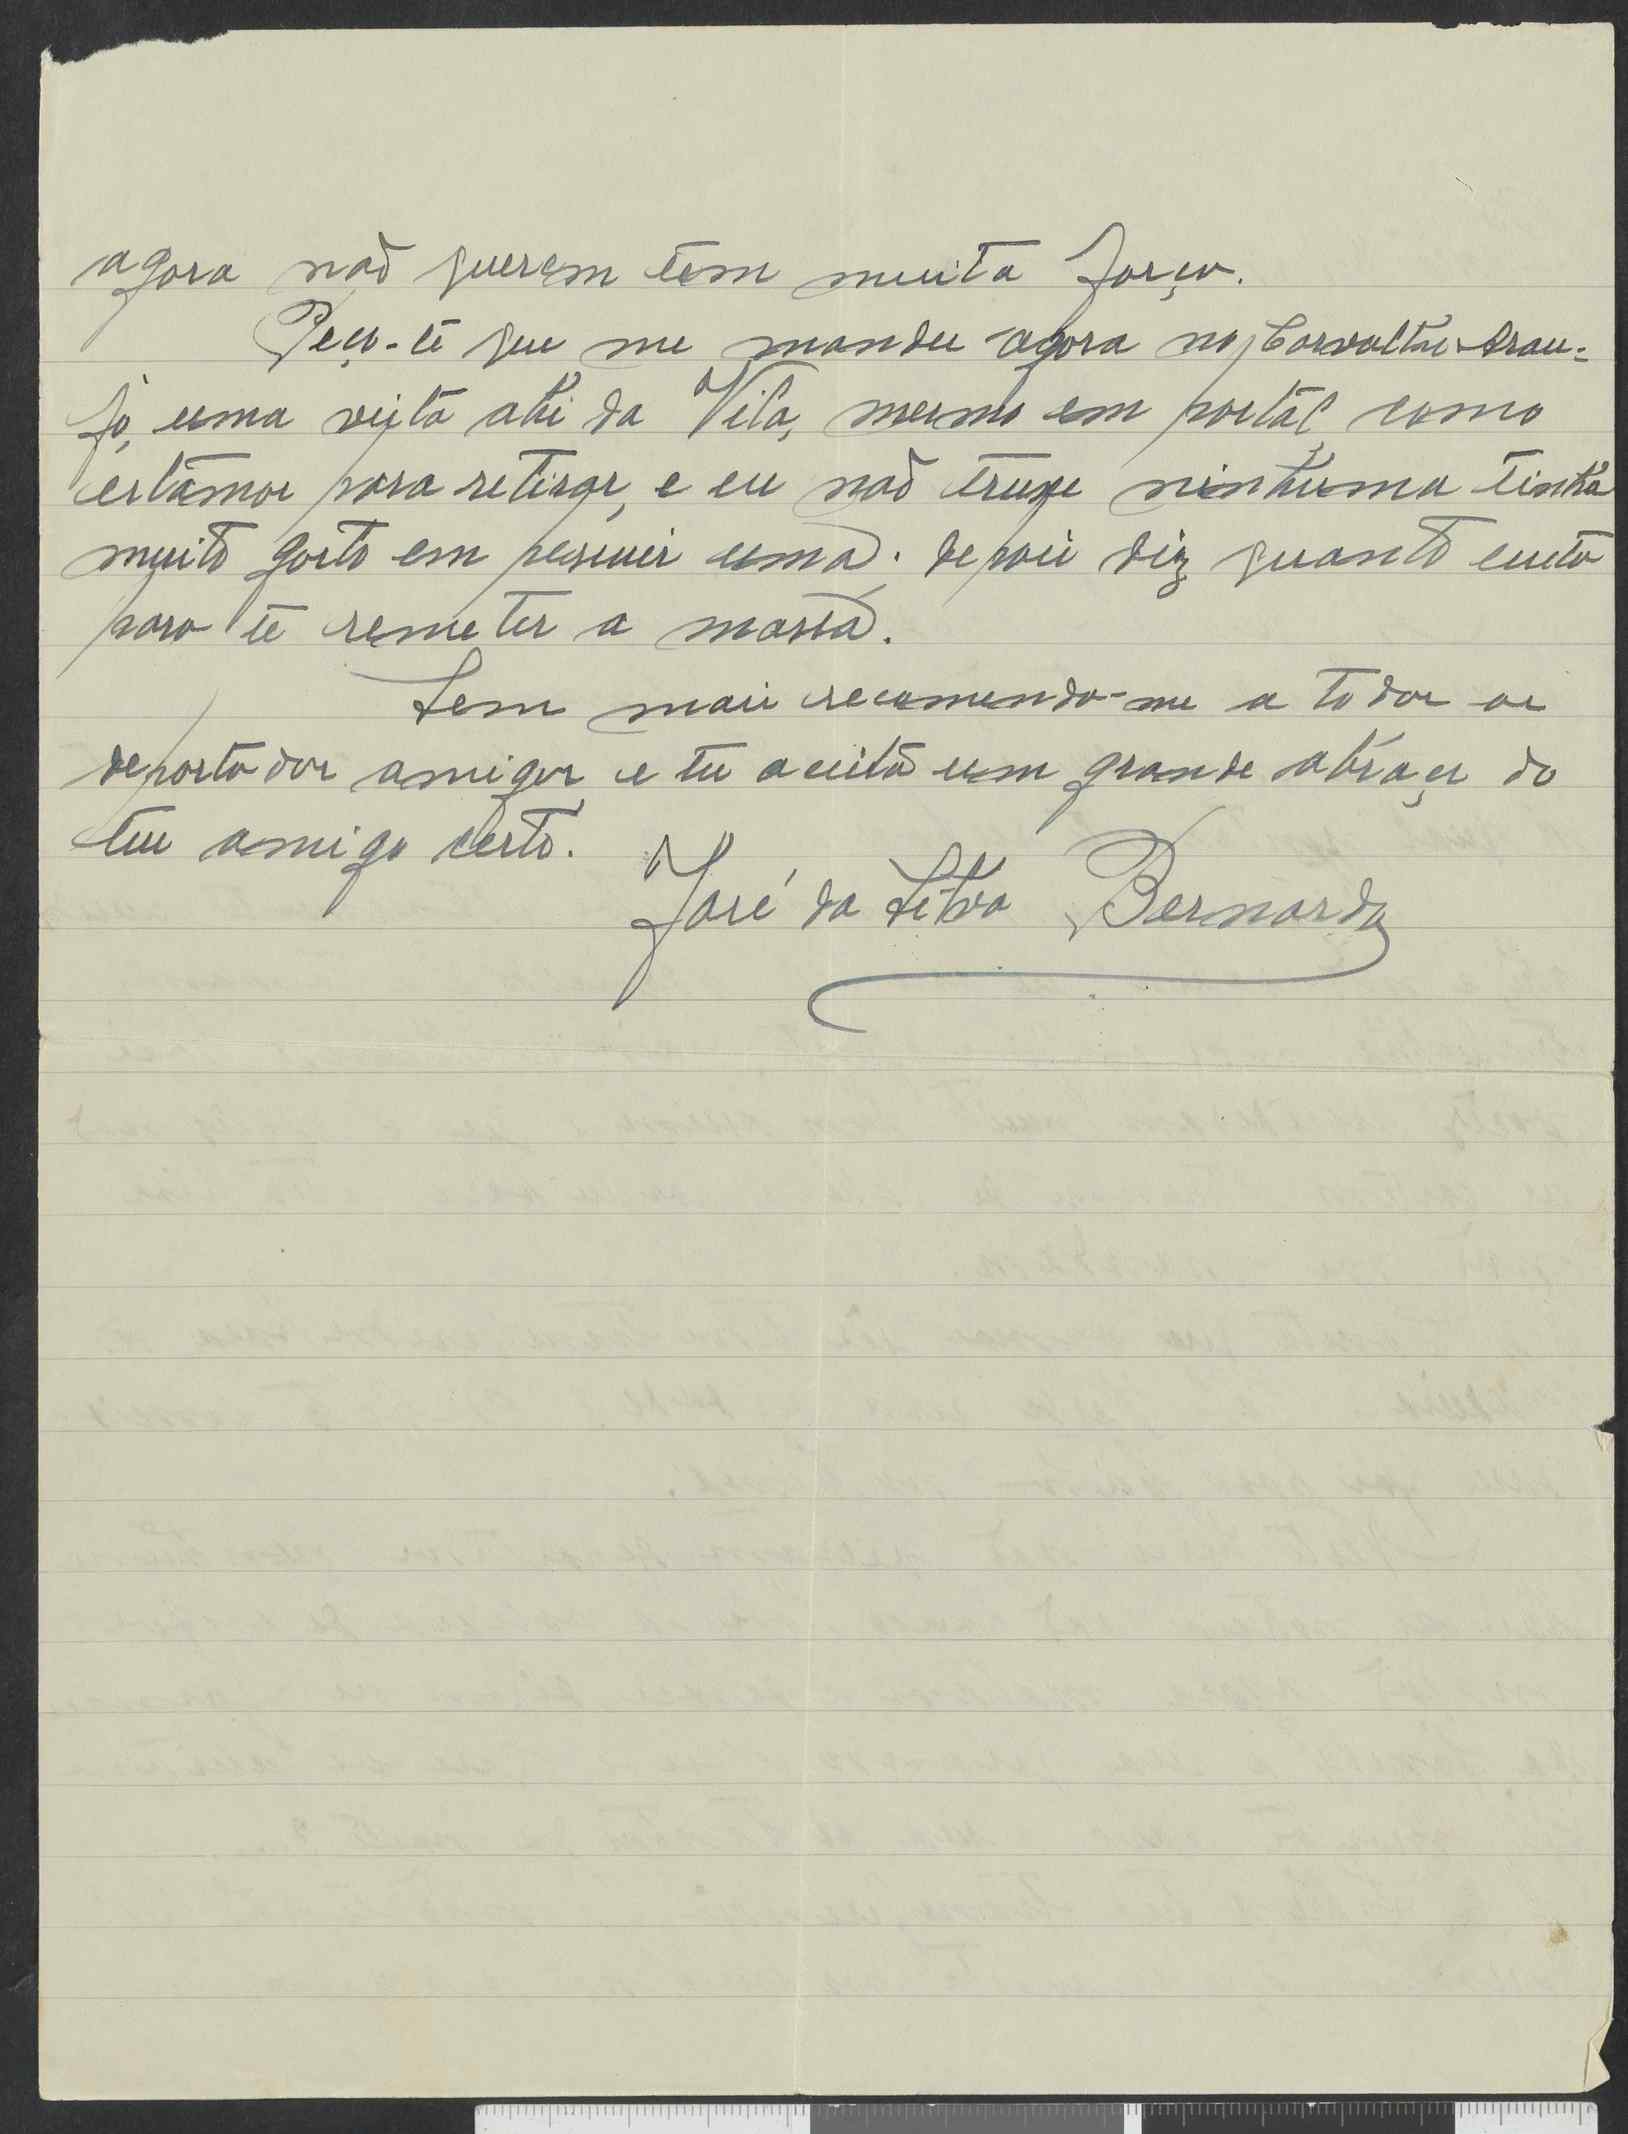 agora não querem tem muita força.
Peço-te que me mandes agora no Carvalho Arau=
jo, uma vista ahi da Vila, mesmo em postal, como
estâmos para retirar, e eu não truxe ninhuma tinha
muito gosto em pessuir uma. depois diz quanto custa
para te remeter a massa.
Sem mais recomenda-me a todos os
deportados amigos e tu aceita um grande abraço do
teu amigo certo.
José da Silva Bernardo